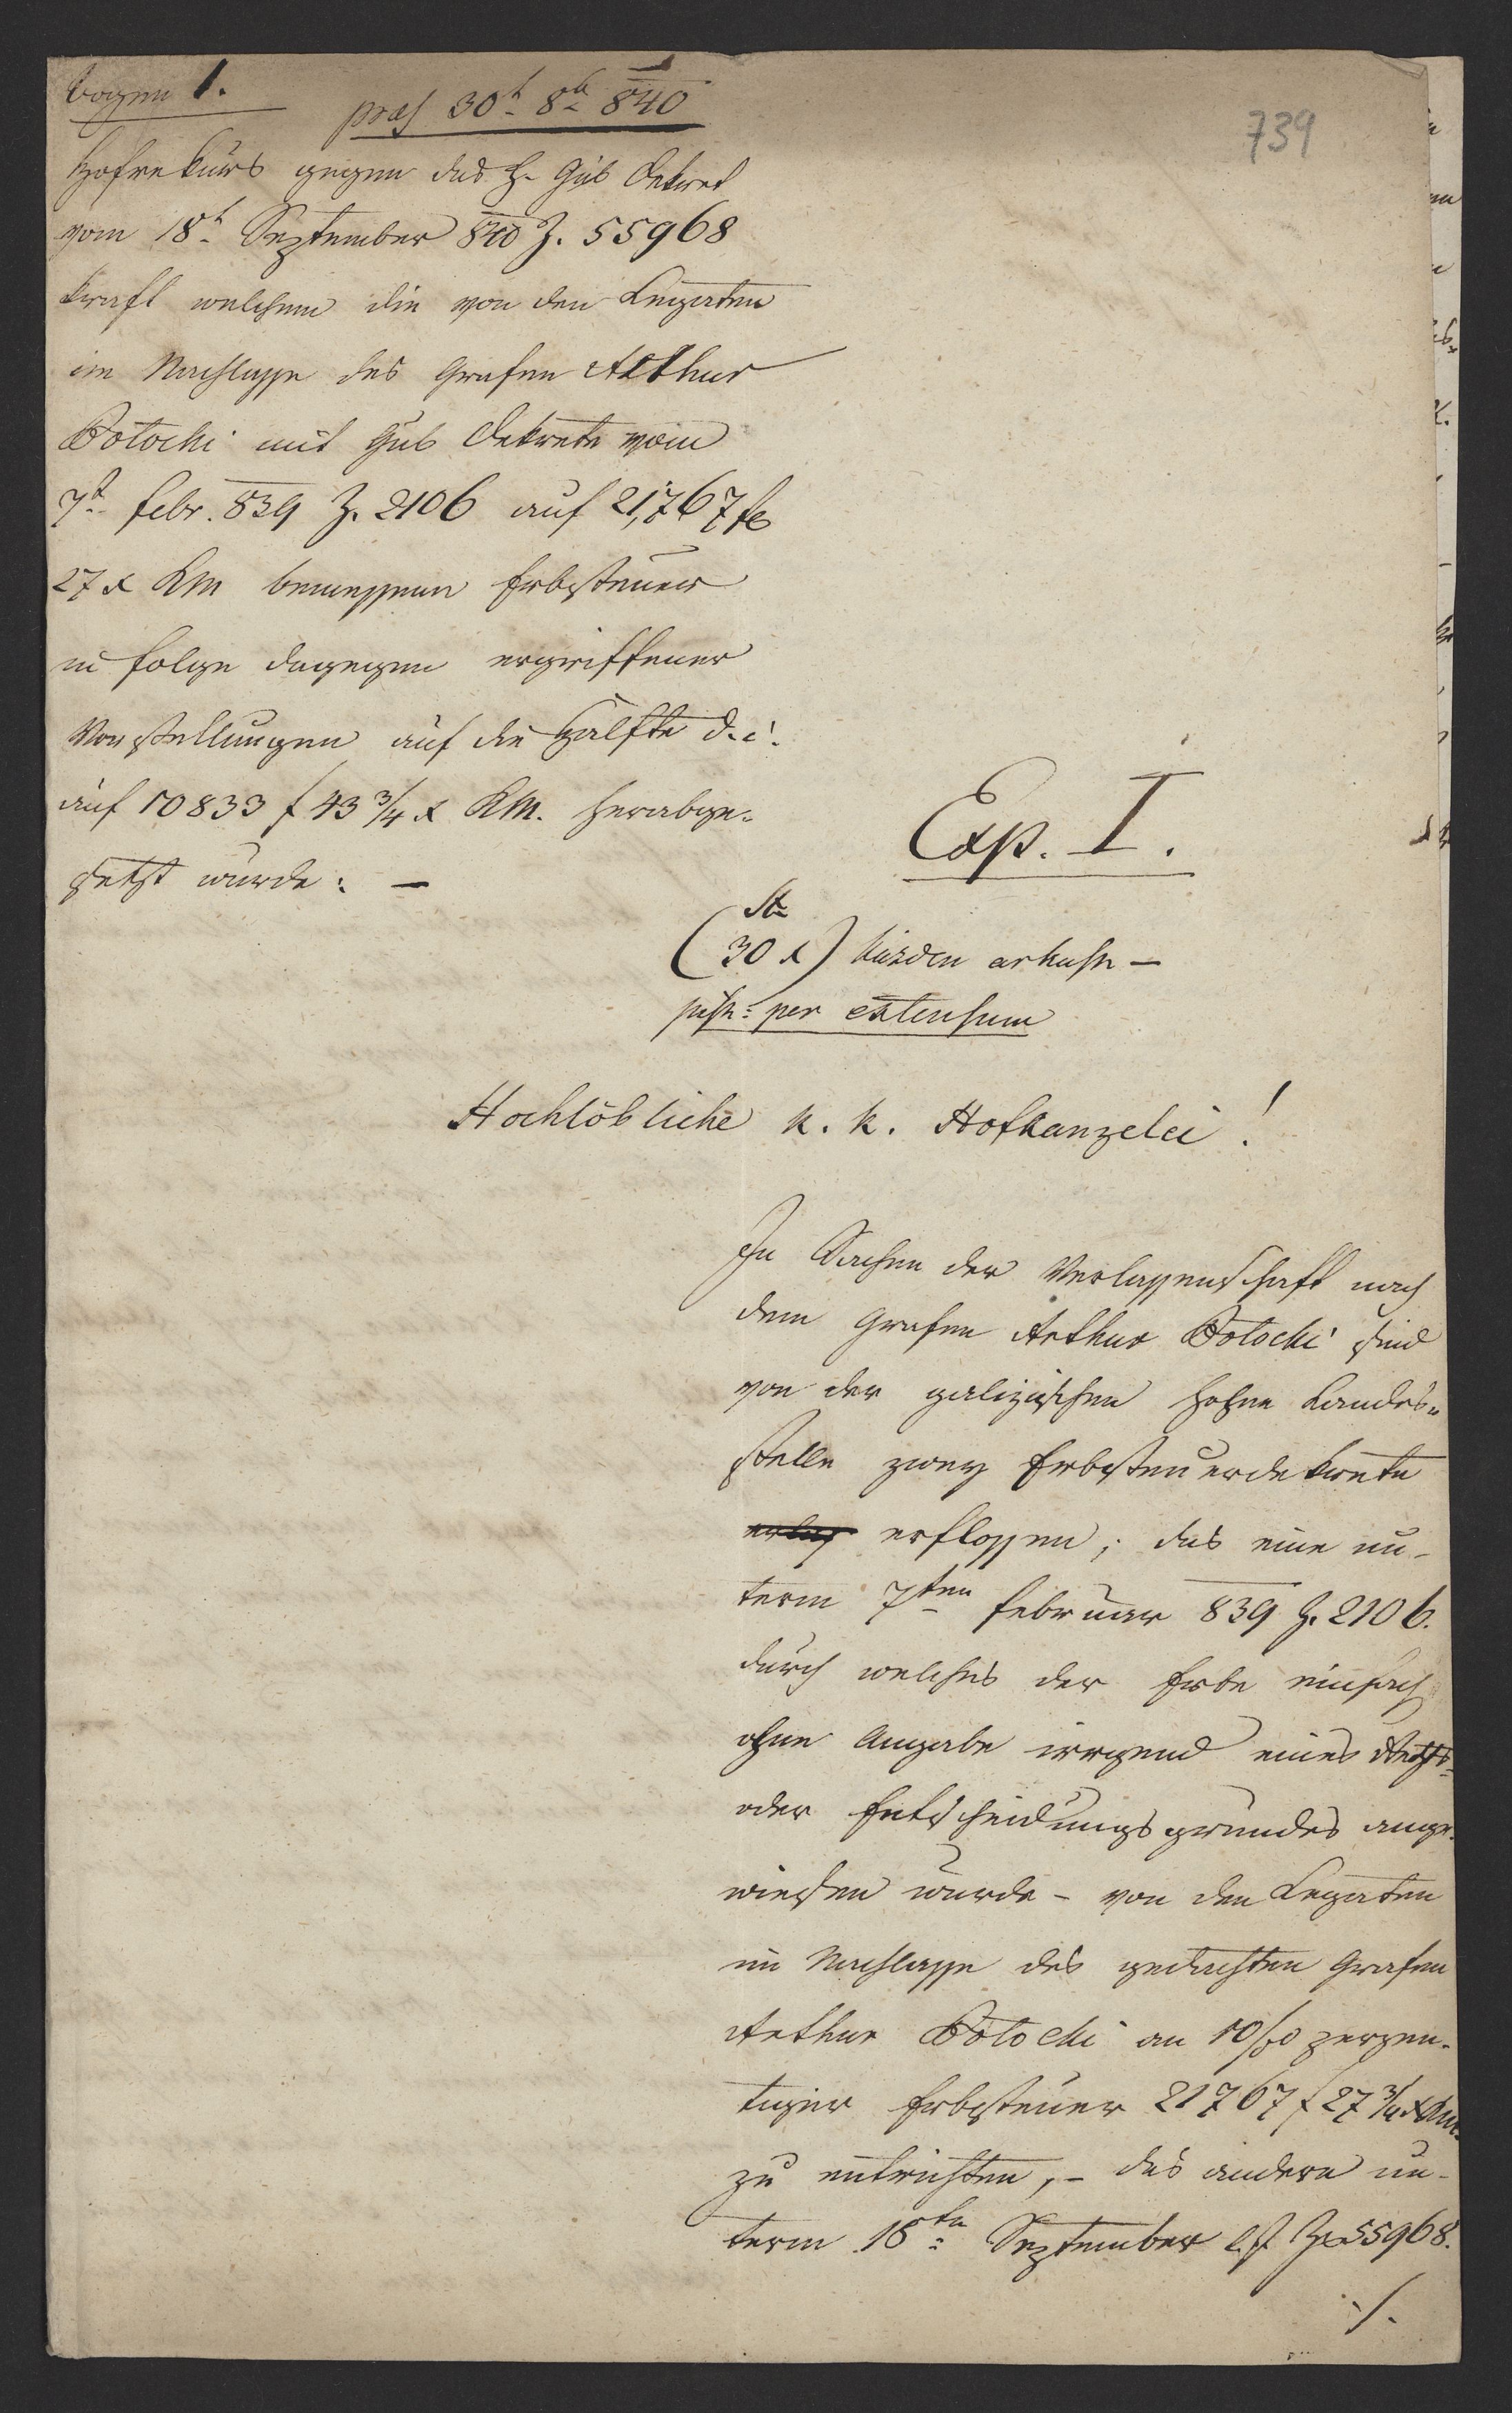 Bogen 1.
praes 30t 8br 840
739
Hofrekurs gegen das h. Gub Dekret
vom 18t September 840 Z. 55968
kraft welchem die von den Legaten
im Nachlasse des Grafen Arthur
Potocki mit Gub Dekrete vom
7t Febr. 839 Z. 2106 auf 21,767 f
27 x KM bemessene Erbsteuer
in Folge dagegen ergriffener
Vorstellungen auf die Hälfte d. i.
auf 10833 f 43 3/4 x KM. herabge-
setzt wurde: —
Exp. I.
(30 x)
per extensum
Hochlöbliche k. k. Hofkanzelei!
In Sachen der Verlassenschaft nach
dem Grafen Arthur Potocki sind
von der galizischen hohen Landes-
stelle zwey Erbsteuerdekrete
erflossen; das eine un-
term 7ten Februar 839 Z. 2106.
durch welches der Erbe einfach
ohne Angabe irgend eines Rechts-
oder Entscheidungsgrundes ange-
wiesen wurde – von den Legaten
im Nachlasse des gedachten Grafen
Arthur Potocki an 10/00 perzen-
tiger Erbsteuer 21767 f 27 3/4 x KM.
zu entrichten, – das andere un-
term 18ten September l. J. Z. 55968.
./.